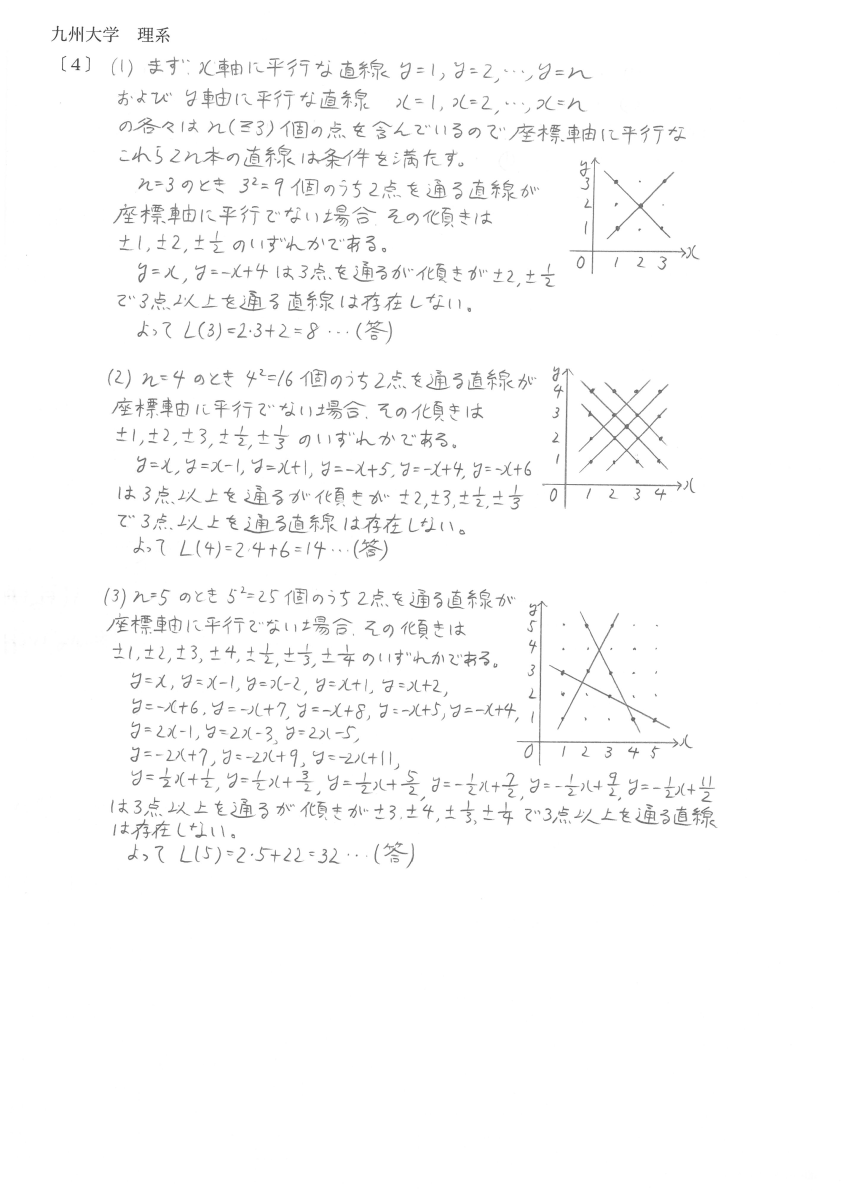 九州大学　理系
〔4〕 (1) まず. x軸に平行な直線 y=1, y=2, …, y=n
および y軸に平行な直線　x=1, x=2, …, x=n
の各々は n(≧3) 個の点を含んでいるので 座標軸に平行な
これら2n本の直線は条件を満たす。
n=3のとき 3²=9個のうち2点を通る直線が
座標軸に平行でない場合. その傾きは
±1, ±2, ±1/2 のいずれかである。
y=x, y=-x+4 は3点を通るが傾きが±2, ±1/2
で3点以上を通る直線は存在しない。
よって L(3)=2・3+2=8 …(答)
y
3
2
1
0 1 2 3 x
(2) n=4 のとき 4²=16個のうち2点を通る直線が
座標軸に平行でない場合. その傾きは
±1, ±2, ±3, ±1/2, ±1/3 のいずれかである。
y=x, y=x-1, y=x+1, y=-x+5, y=-x+4, y=-x+6
は3点以上を通るが傾きが ±2, ±3, ±1/2, ±1/3
で3点以上を通る直線は存在しない。
よって L(4)=2・4+6=14 …(答)
y
4
3
2
1
0 1 2 3 4 x
(3) n=5 のとき 5²=25個のうち2点を通る直線が
座標軸に平行でない場合. その傾きは
±1, ±2, ±3, ±4, ±1/2, ±1/3, ±1/4 のいずれかである。
y=x, y=x-1, y=x-2, y=x+1, y=x+2,
y=-x+6, y=-x+7, y=-x+8, y=-x+5, y=-x+4,
y=2x-1, y=2x-3, y=2x-5,
y=-2x+7, y=-2x+9, y=-2x+11,
y=1/2x+1/2, y=1/2x+3/2, y=1/2x+5/2, y=-1/2x+7/2, y=-1/2x+9/2, y=-1/2x+11/2
は3点以上を通るが傾きが±3, ±4, ±1/3, ±1/4 で3点以上を通る直線
は存在しない。
よって L(5)=2・5+22=32 …(答)
y
5
4
3
2
1
0 1 2 3 4 5 x